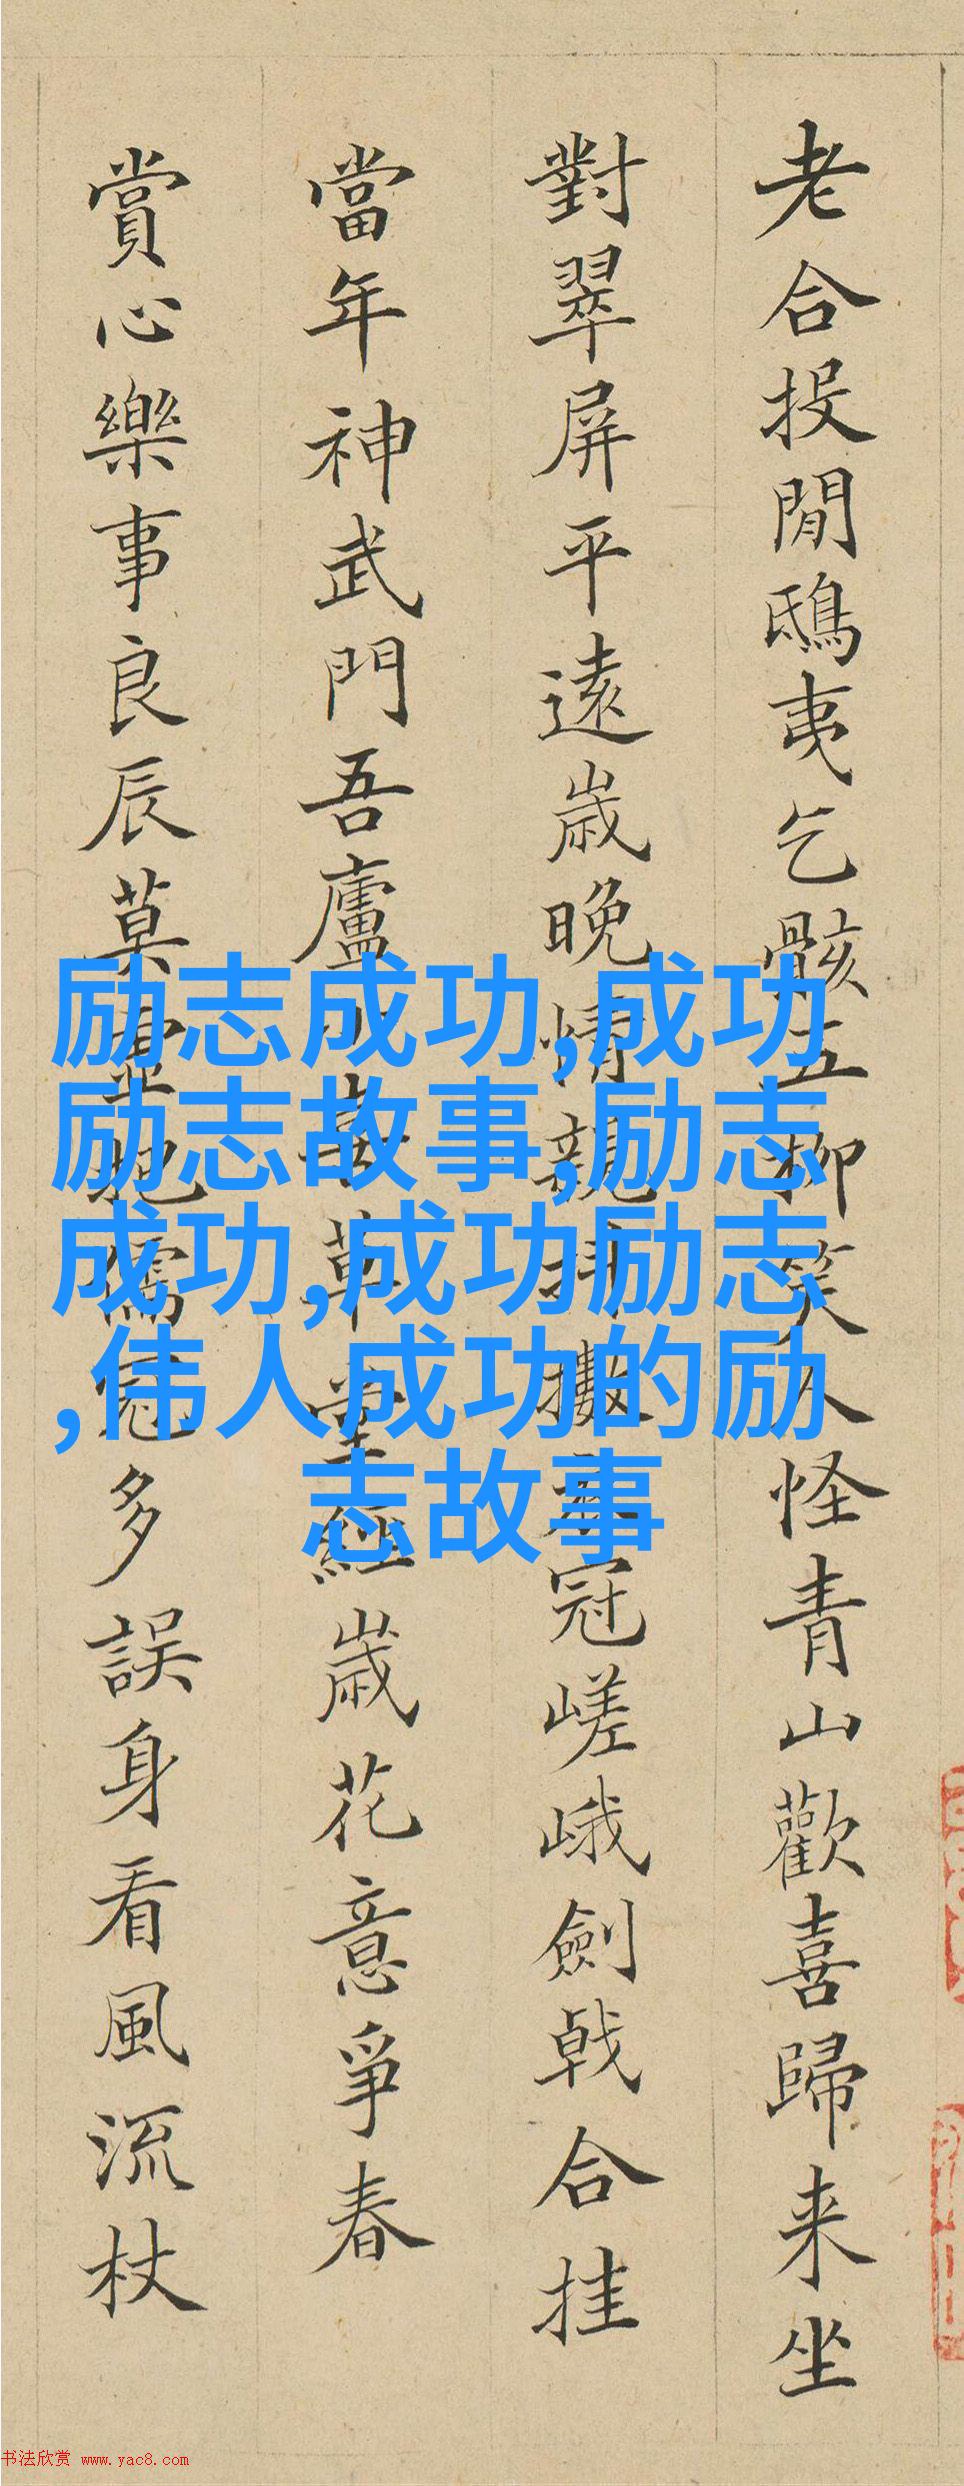 老合投閒鴟夷乞骸五柳笑人怪青山歡喜歸来坐
對翠屏平遠歲晚情親冠嵯峨劍戟合挂
當年神武門吾廬草堂經歲花意爭春
賞心樂事良辰莫靈抱儒冠多誤身看風流杖
励志成功,成功
励志故事,励志
成功,成功励志
,伟人成功的励
志故事
书法欣赏 www.yac8.com